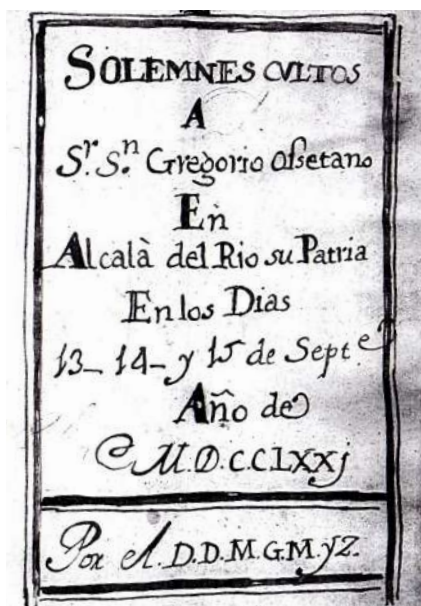 SOLEMNES CVLTOS
A
Sr. Sn. Gregorio Ossetano
En
Alcalà del Rio su Patria
En los Dias
13_ 14_ y 15 de Septe
Año de
M.D.CCLXXj
Por el D.D.M.G.M.yZ.